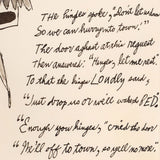 The hinges spoke, "don't let us
So we can hurry into town."
The door aghast at his request
Then answered: "Hinges, let me rest
To that the hings LOUDLY said,
"Just drop us or we'll wake RED,
"Enough you hinges," cried the door
"We'll off to town, so yell no more.